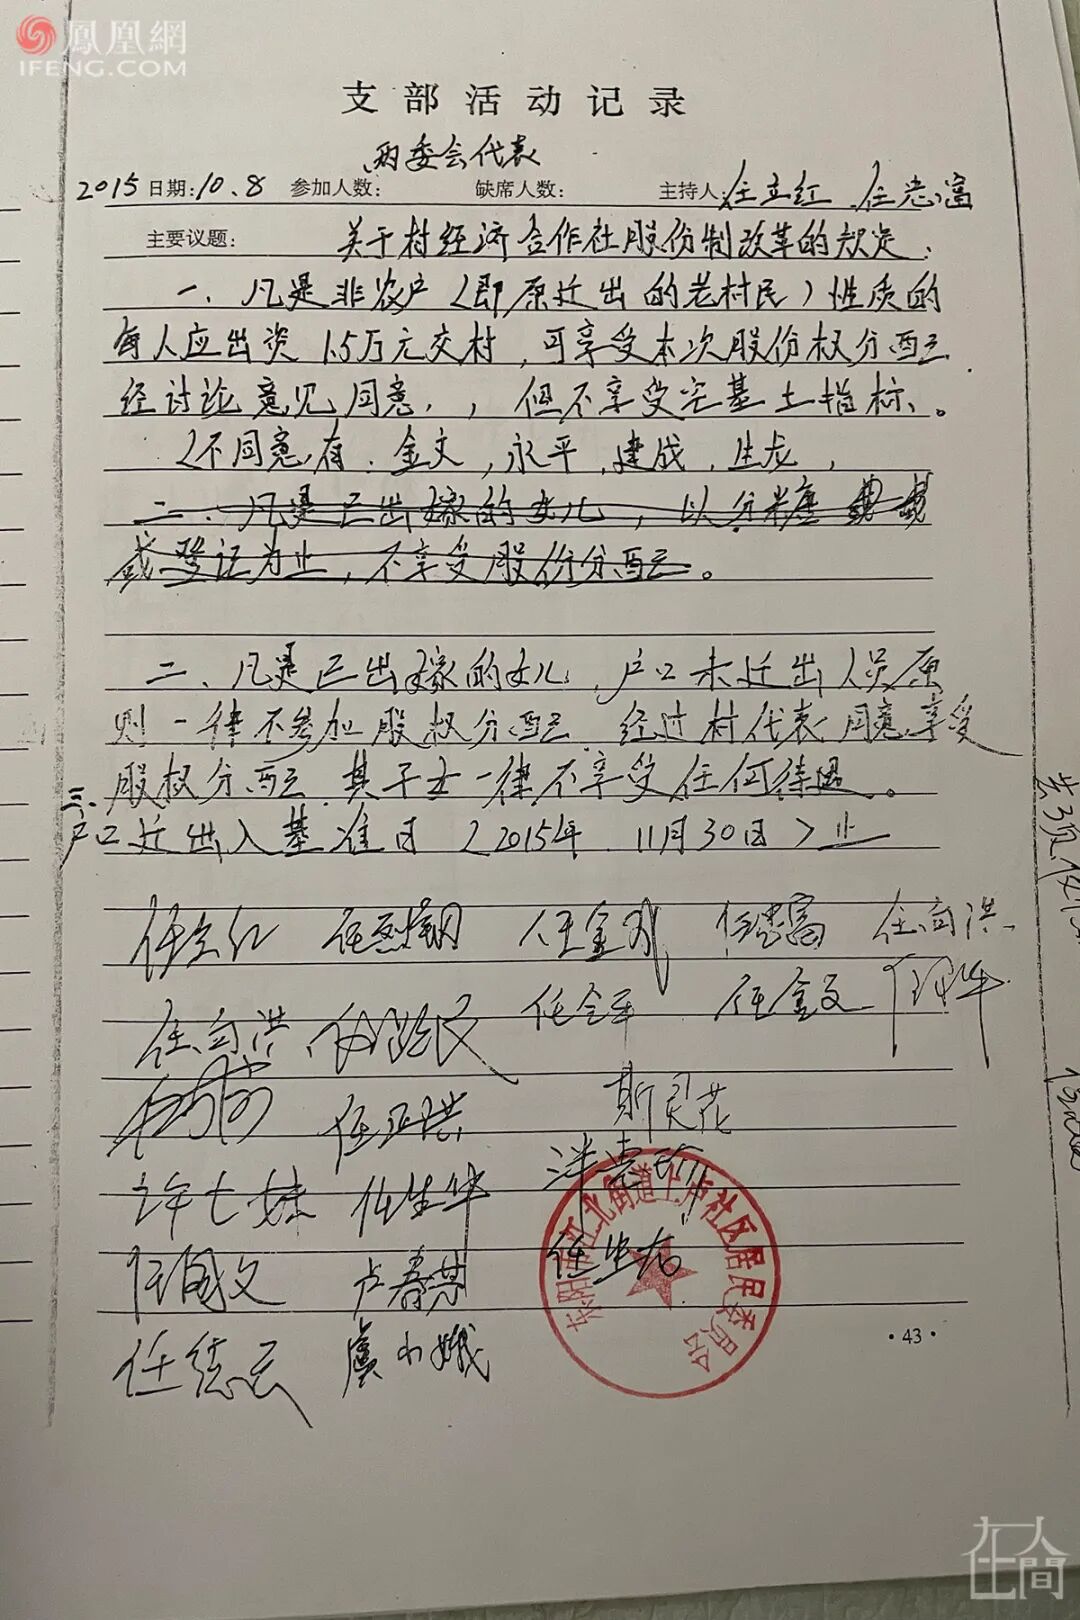 鳳凰網
IFENG.COM
支部活动记录
两委会代表
2015日期:10.8 参加人数: 缺席人数: 主持人:任立红 任忠富
主要议题: 关于村经济合作社股份制改革的规定:
一、凡是非农户(即原迁出的老村民)性质的
每人应出资1.5万元交村,可享受本次股份权分配
经讨论意见同意,,但不享受宅基土指标、。
(不同意有:金文,永平,建成,生龙,
二、凡是已出嫁的女儿,以分粮
或登记为止,不享受股份分配。
二、凡是已出嫁的女儿,户口未迁出人员原
则一律不参加股权分配 经过村代表同意享受
股权分配 其子女一律不享受任何待遇。
三、
户口迁出入基准日(2015年 11月30日)止
任立红 任金 任忠富 任向洪
任向洪 任金平 任金文
任正洪 斯灵花
许七妹 任生华
任国文 任生龙
任德云 虞小娥
东阳市江北街道上卢社区居民委员会
·43·
在人間